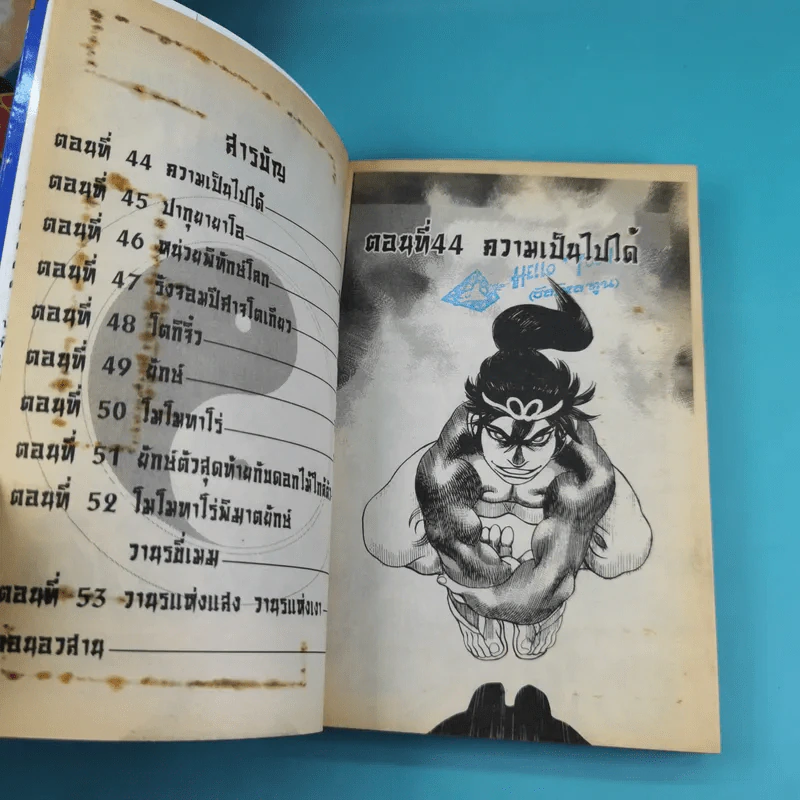 สารบัญ
ตอนที่ 44 ความเป็นไปได้
ตอนที่ 45 ปากุยายาโอ
ตอนที่ 46 หน่วยพิทักษ์โลก
ตอนที่ 47 รังจอมปีศาจโตเกียว
ตอนที่ 48 โตกิจิ๋ว
ตอนที่ 49 ยักษ์
ตอนที่ 50 โมโมทาโร่
ตอนที่ 51 ยักษ์ตัวสุดท้ายกับดอกไม้ใกล้
ตอนที่ 52 โมโมทาโร่พิฆาตยักษ์
วานรอี่เมม
ตอนที่ 53 วานรแห่งแสง วานรแห่งเงา
ตอนอวสาน
ตอนที่44 ความเป็นไปได้
Hello